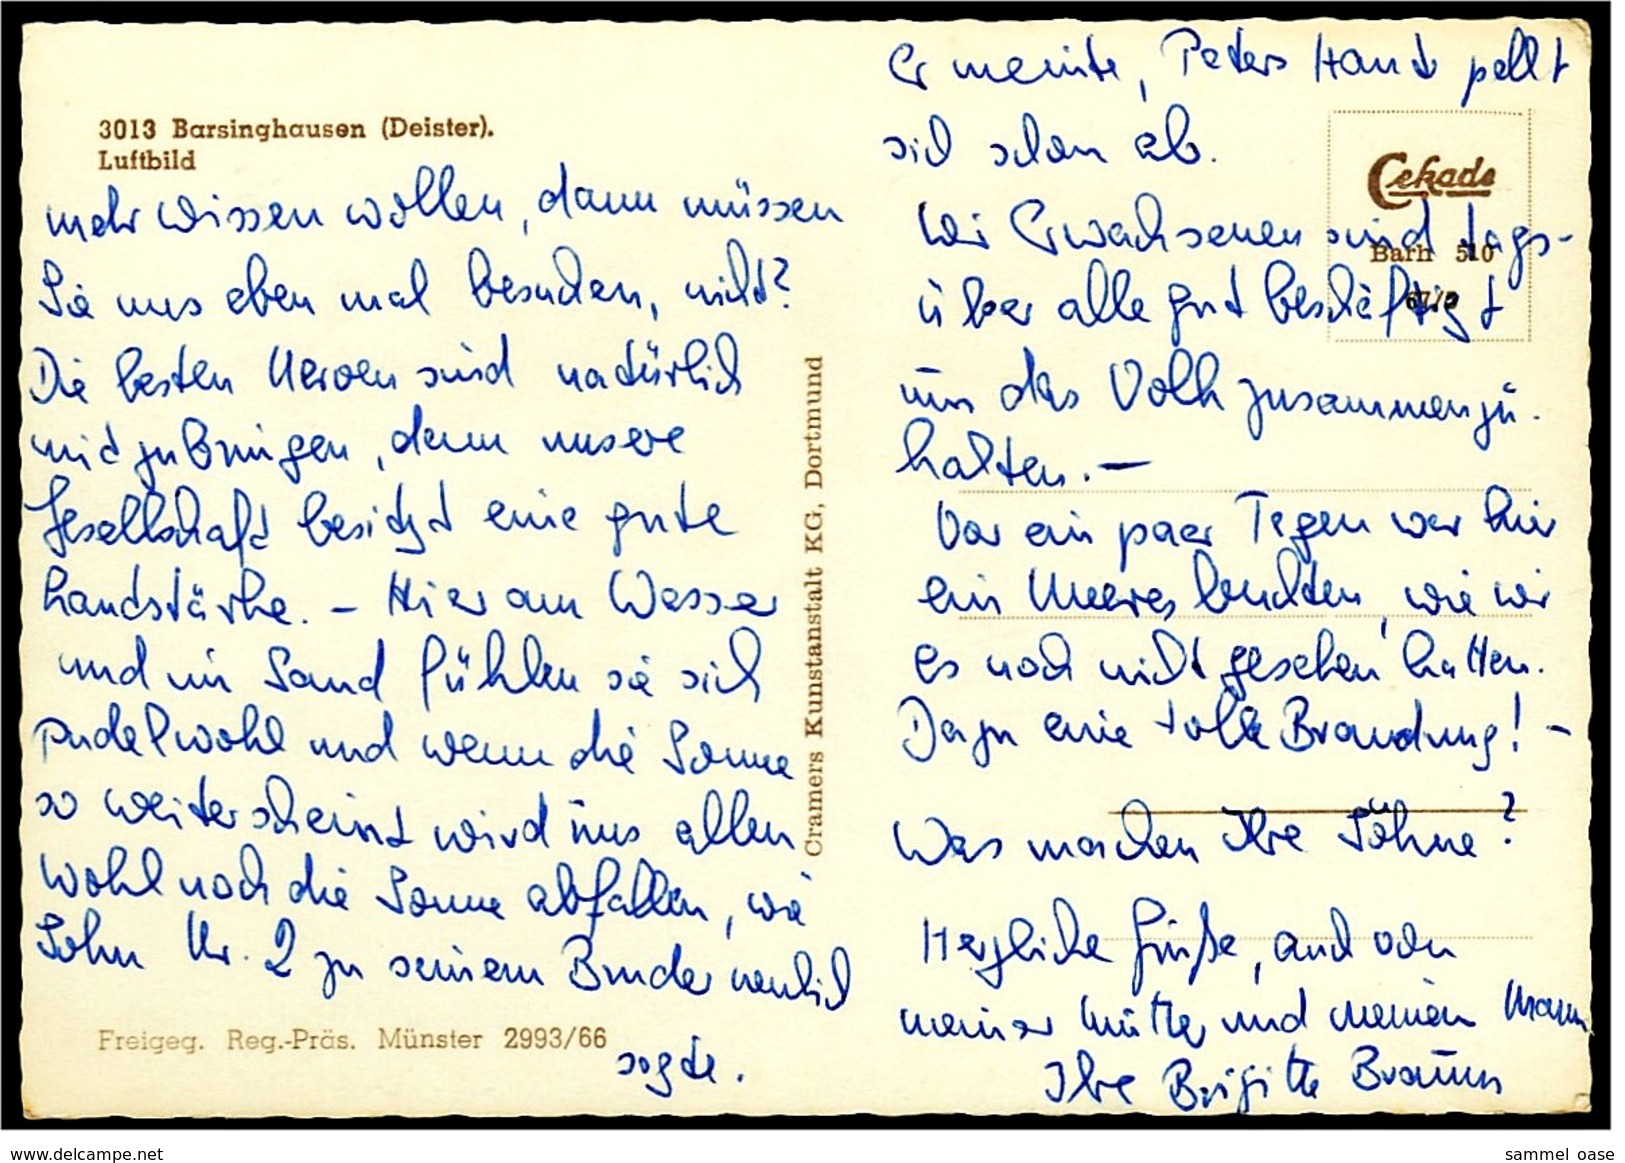 3013 Barsinghausen (Deister).
Luftbild
mehr wissen wollen, dann müssen
Sie uns eben mal besuchen, nicht?
Die besten Nerven sind natürlich
mitzubringen, denn unsere
Gesellschaft besitzt eine gute
Lautstärke. – Hier am Wasser
und im Sand fühlen sie sich
pudelwohl und wenn die Sonne
so weiterscheint wird uns allen
wohl noch die Sonne abfallen, wie
Sohn Nr. 2 zu seinem Bruder neulich
sagte.
Freigeg. Reg.-Präs. Münster 2993/66
Cramers Kunstanstalt KG, Dortmund
Er meinte, Peters Haut pellt
sich schon ab.
Cekade
Barh 510
67/9
Wir Erwachsenen sind tags-
über alle gut beschäftigt
um das Volk zusammenzu-
halten. –
Vor ein paar Tagen war hier
ein Meeresleuchten, wie wir
es noch nicht gesehen hatten.
Dazu eine tolle Brandung! –
Was machen Ihre Söhne?
Herzliche Grüße, auch von
meiner Mutter und meinem Mann
Ihre Brigitte Braun
sammlerecke.com
sammel oase